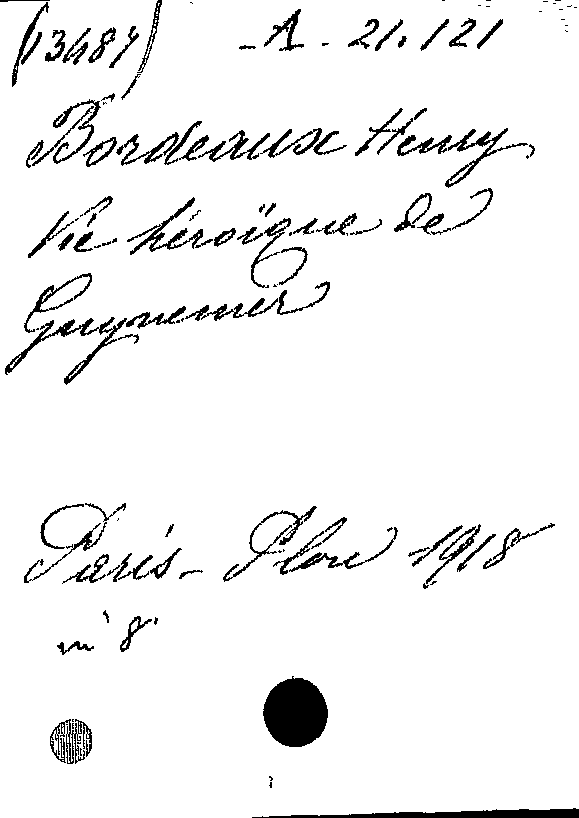 (13487) - A - 21.121
Bordeaux Henry
Vie héroïque de
Guynemer
Paris - Plon 1918
in 8°